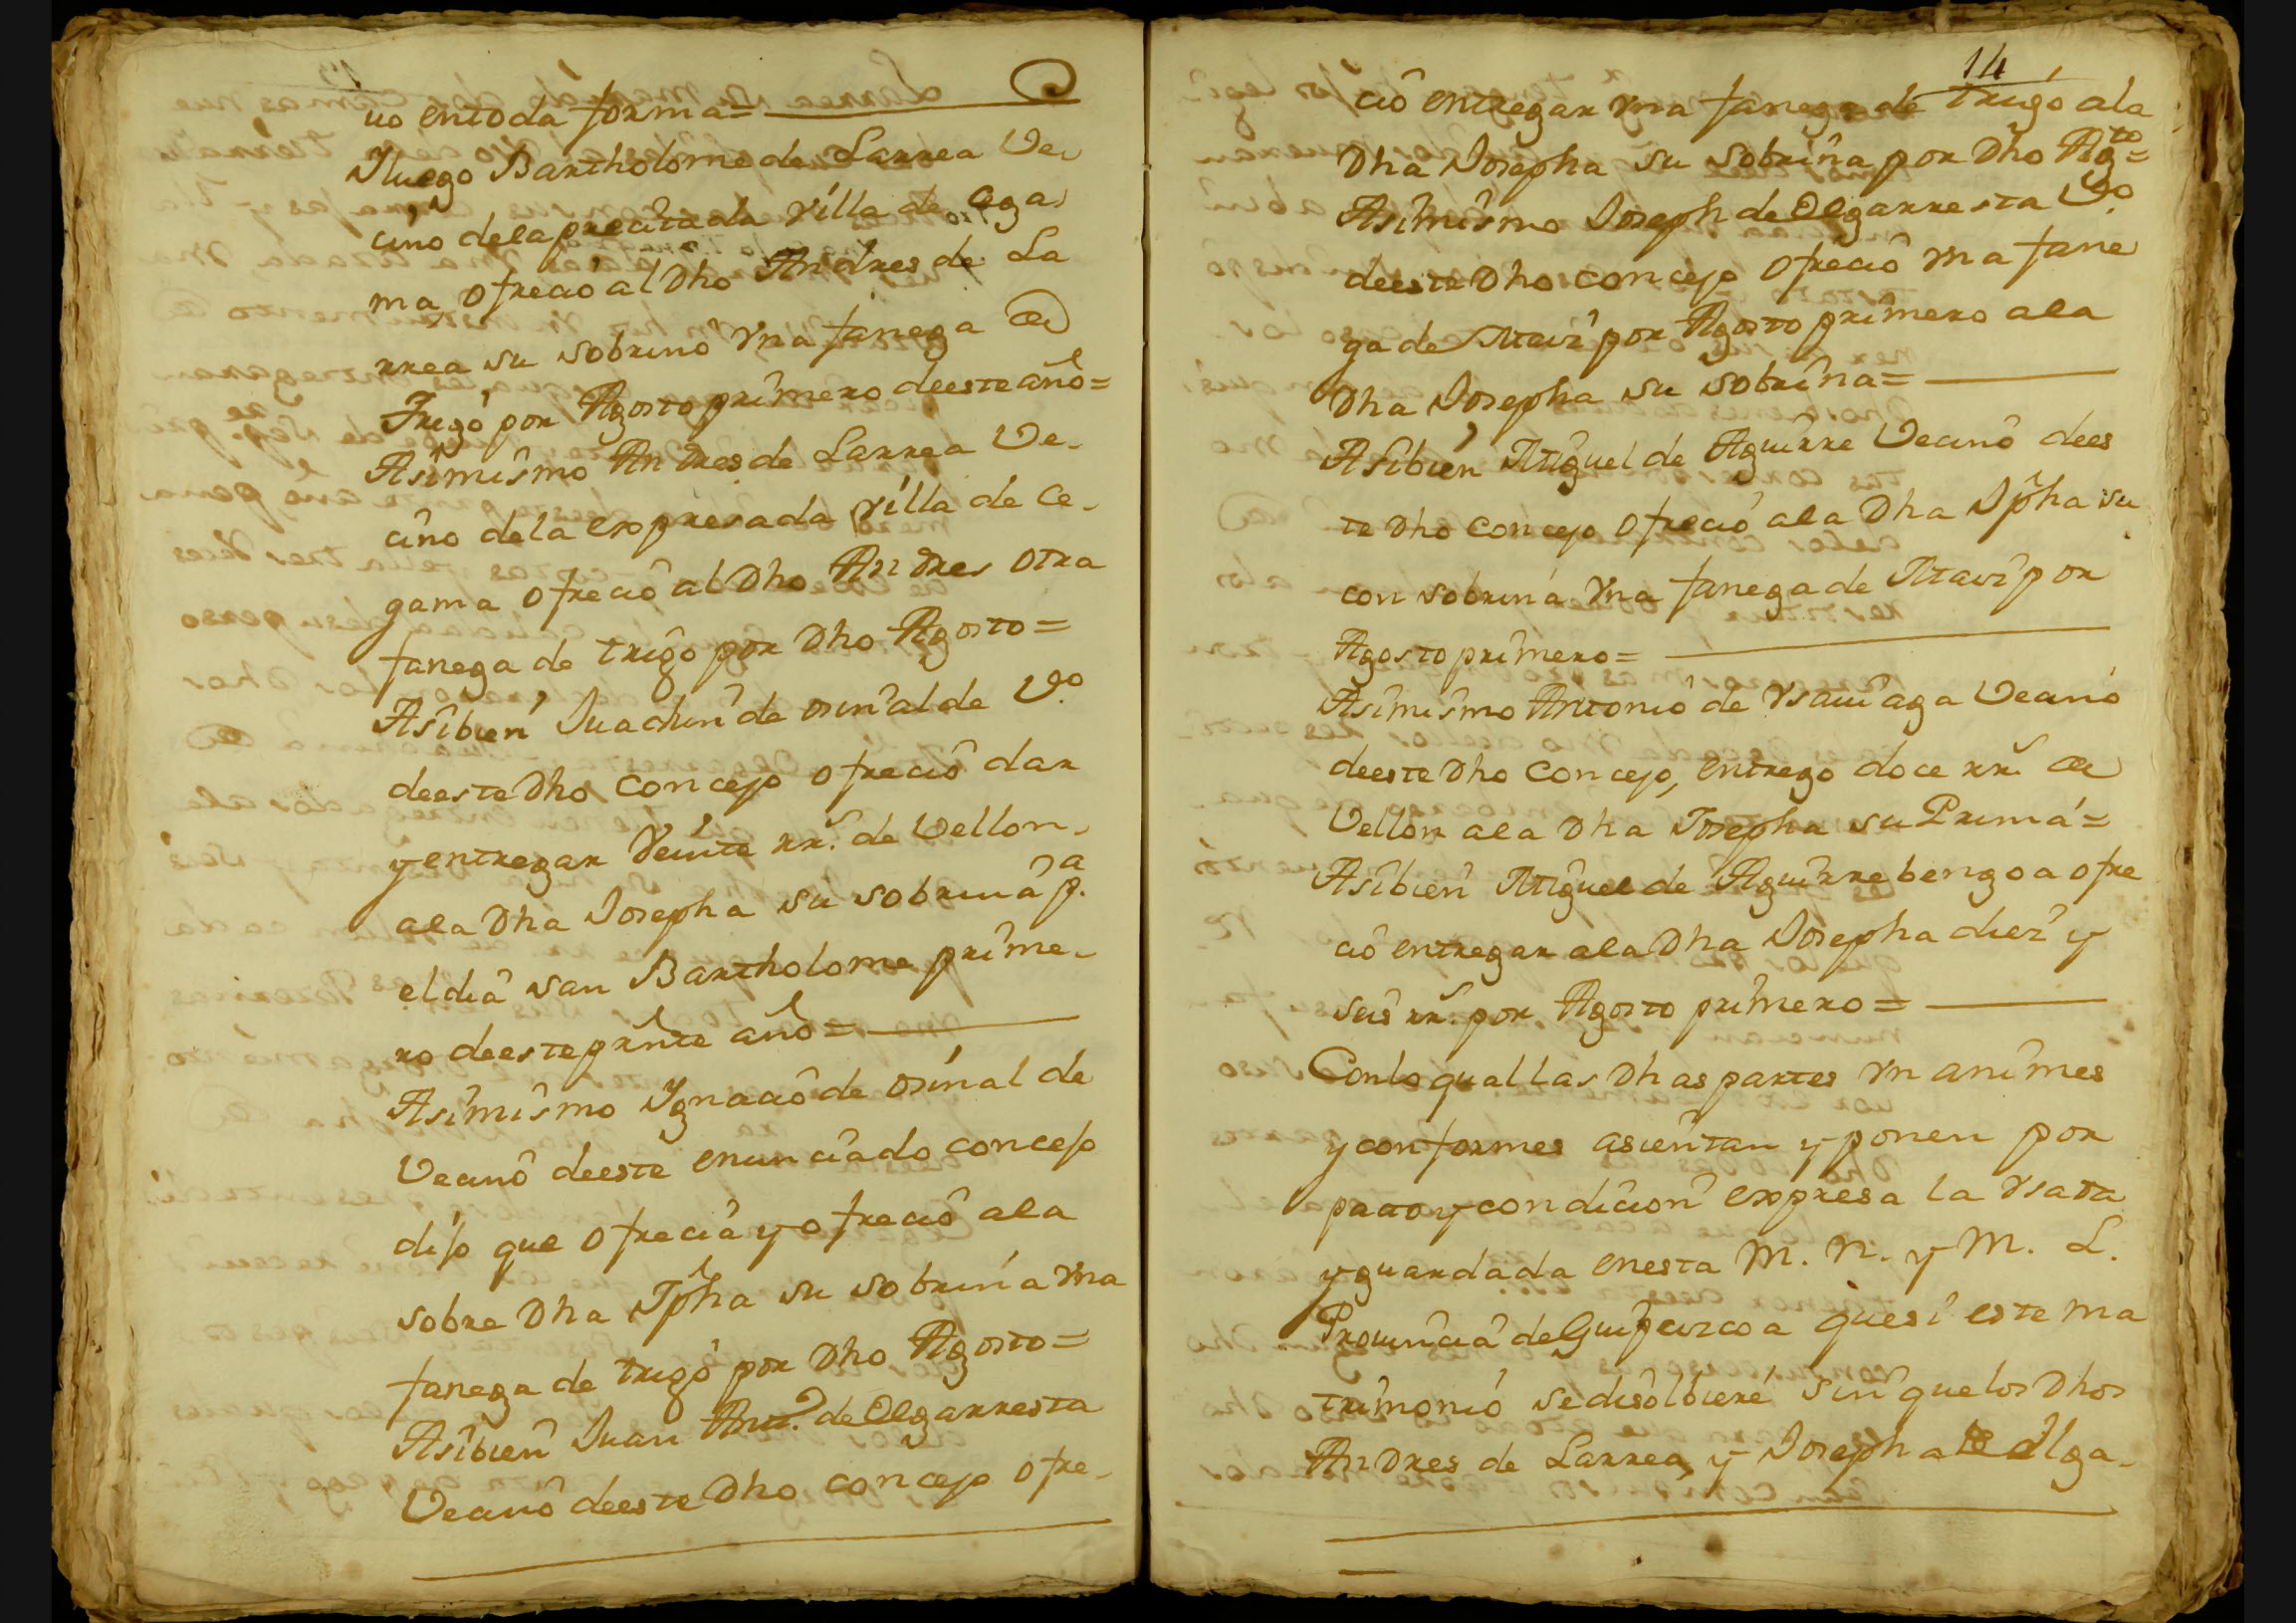 uo entoda forma=
Iluego Bartholome de Larrea Ve
cino dela precitada villa de Zega
ma, ofrecio al Dho Andres de La
rrea su sobrino Vna fanega de
Trigo por Agosto primero deeste año=
Asimismo Andres de Larrea Ve-
cino dela expresada villa de Ce-
gama ofrecio al Dho Andres otra
fanega de trigo por Dho Agosto=
Asibien Juachin de osinalde Vo.
deeste Dho Concejo ofrecio dar
y entregar Veinte rrs. de Vellon
ala Dha Josepha su sobrina pa.
el dia san Bartholome prime-
ro deeste prnte año=
Asimismo Ygnacio de osinalde
Vecino deeste enunciado concejo
dijo que ofrecia y ofrecio ala
sobre Dha Jpha su sobrina Vna
fanega de trigo por Dho Agosto=
Asibien Juan Anto. de Olgarresta
Vecino deeste Dho concejo ofre-
14
cio entregar Vna fanega de trigo ala
Dha Josepha su sobrina por Dho Agto=
Asimismo Joseph de Olgarresta Vo.
deeste Dho concejo ofrecio Vna fane
ga de Maiz por Agosto primero ala
Dha Josepha su sobrina=
Asibien Miguel de Aguirre Vecino dees
te Dho concejo ofrecio ala Dha Jpha su
con sobrina Vna fanega de Maiz por
Agosto primero=
Asimismo Antonio de Vsauiaga Vecino
deeste Dho Concejo, entrego doce rrs. de
Vellon ala Dha Josepha su Prima=
Asibien Miguel de Aguirrebengoa ofre
cio entregar ala Dha Josepha diez y
seis rrs. por Agosto primero=
Conlo qual las Dhas partes Vnanimes
y conformes asientan y ponen por
pacto y condicion expresa la Vsada
y guardada enesta M. N. y M. L.
Prouincia de Guipuzcoa quesi este ma
trimonio sedisolbiere sin quelos Dhos
Andres de Larrea, y Josepha de olga-